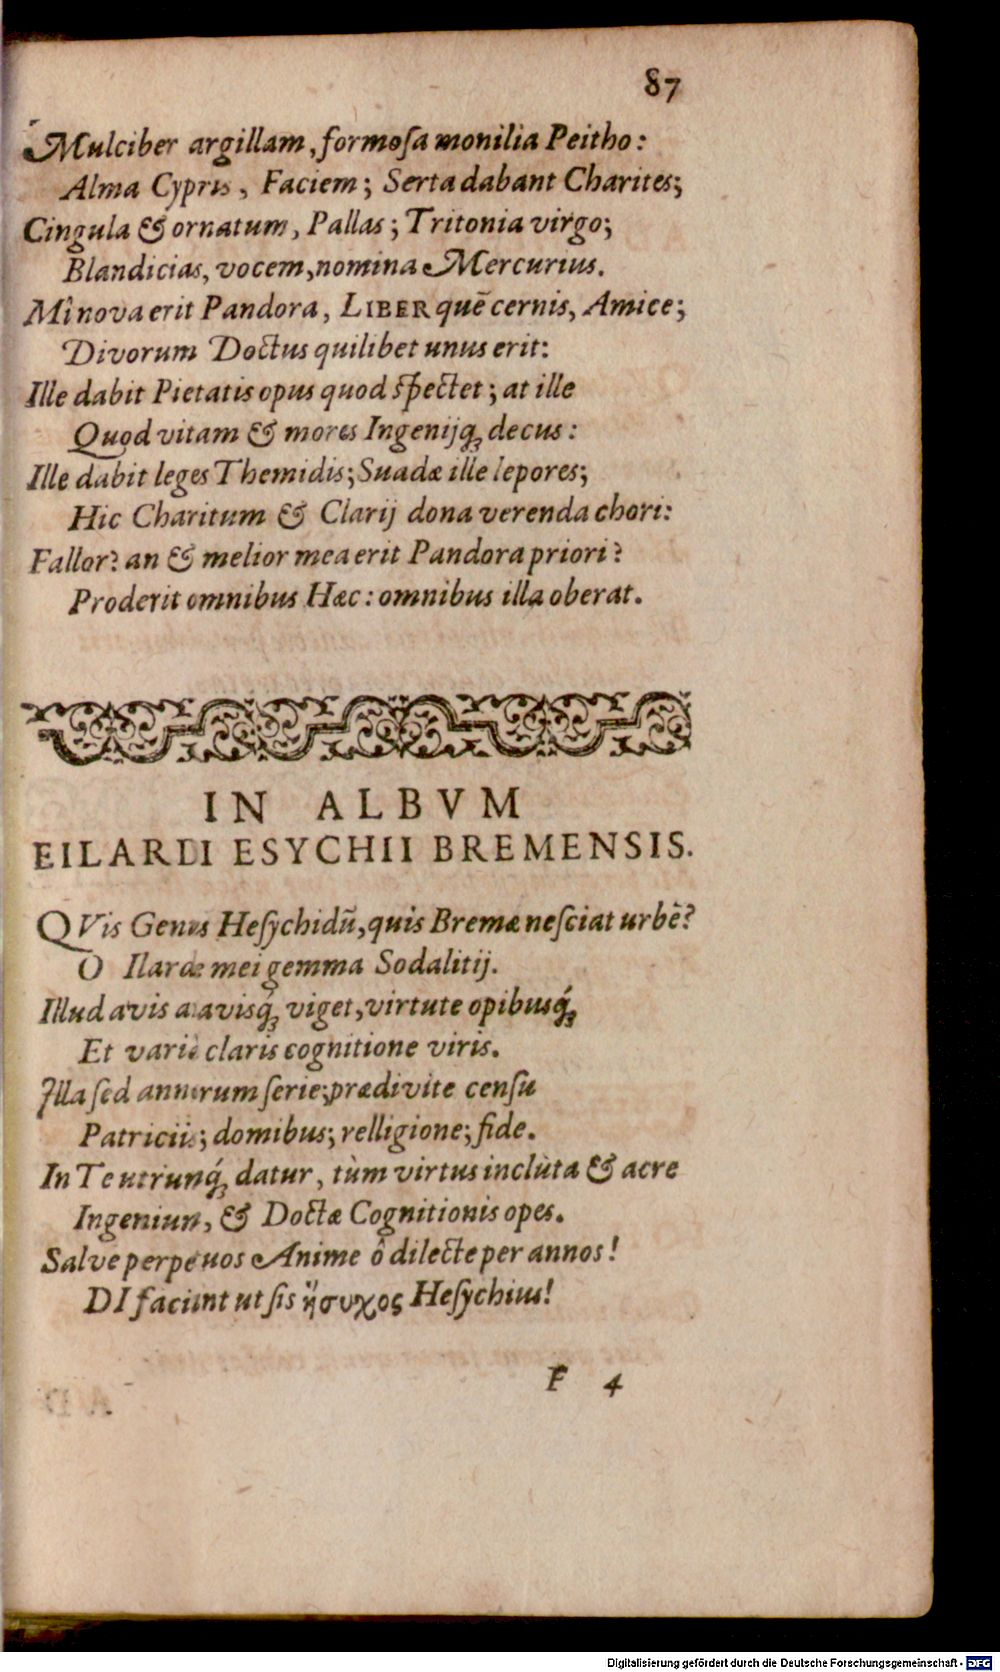 87
Mulciber argillam, formoſa monilia Peitho:
Alma Cypris, Faciem; Serta dabant Charites;
Cingula & ornatum, Pallas; Tritonia virgo;
Blandicias, vocem, nomina Mercurius.
Mî nova erit Pandora, LIBER quē cernis, Amice;
Divorum Doctus quilibet unus erit:
Ille dabit Pietatis opus quod ſpectet; at ille
Quod vitam & mores Ingenijq́ꝫ decus:
Ille dabit leges Themidis; Suadæ ille lepores;
Hic Charitum & Clarij dona verenda chori:
Fallor? an & melior mea erit Pandora priori?
Proderit omnibus Hæc: omnibus illa oberat.
IN ALBVM
EILARDI ESYCHII BREMENSIS.
QVis Genus Heſychidū, quis Bremæ neſciat urbē?
O Ilarde mei gemma Sodalitij.
Illud avis atavisq́ꝫ viget, virtute opibusq́ꝫ
Et variè claris cognitione viris.
Illa ſed annorum ſerie; prædivite cenſu
Patriciis; domibus; relligione; fide.
In Te utrunq́ꝫ datur, tùm virtus inclùta & acre
Ingenium, & Doctæ Cognitionis opes.
Salve perpetuos Anime ô dilecte per annos!
DI faciunt ut ſis ἥσυχος Heſychius!
F 4
Digitalisierung gefördert durch die Deutsche Forschungsgemeinschaft - DFG